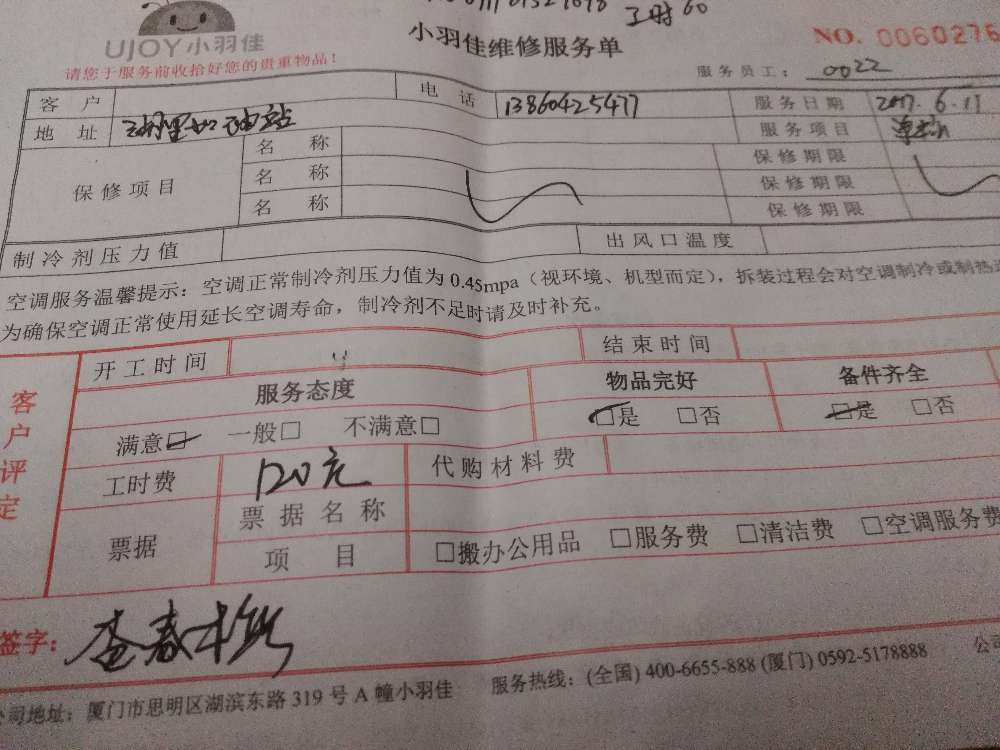 工时60
UJOY小羽佳
小羽佳维修服务单
NO. 0060276
请您于服务前收拾好您的贵重物品!
服务员工: 0022
客户 电话 13860425477 服务日期 2017.6.17
地址 加油站 服务项目
保修项目 名称 保修期限
名称 保修期限
名称 保修期限
制冷剂压力值 出风口温度
空调服务温馨提示:空调正常制冷剂压力值为0.45mpa(视环境、机型而定),拆装过程会对空调制冷或制热
为确保空调正常使用延长空调寿命,制冷剂不足时请及时补充。
客户评定
开工时间 结束时间
服务态度 物品完好 备件齐全
满意□ 一般□ 不满意□ □是 □否 □是 □否
工时费 120元 代购材料费
票据 票据名称
项目 □搬办公用品 □服务费 □清洁费 □空调服务费
签字:
公司地址:厦门市思明区湖滨东路319号A幢小羽佳 服务热线:(全国) 400-6655-888 (厦门) 0592-5178888 公司